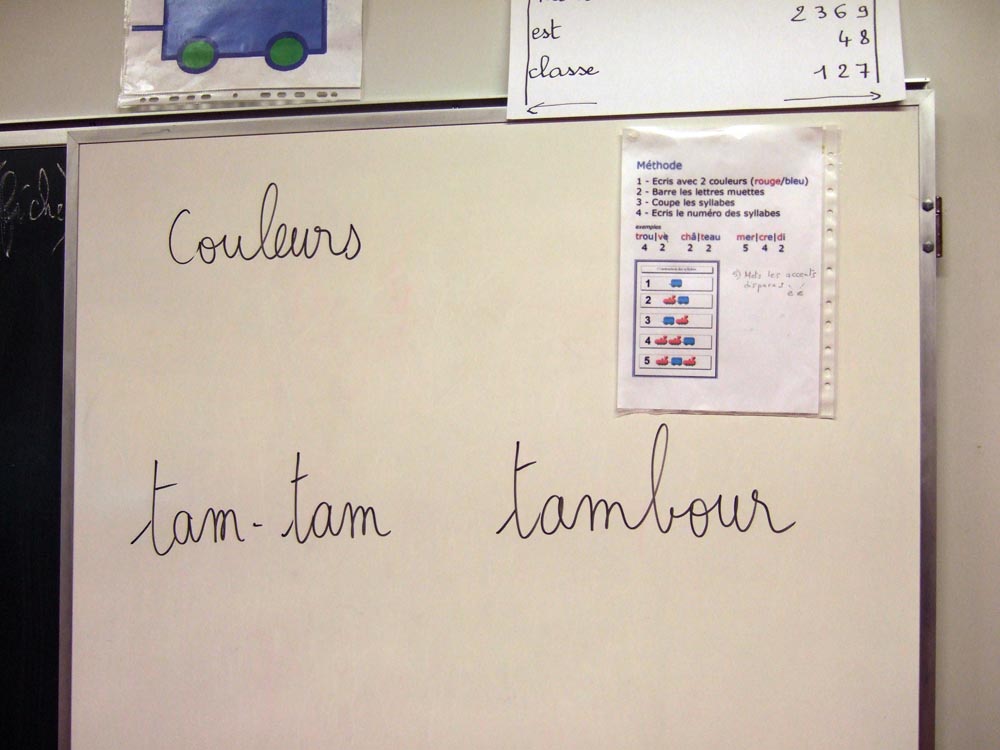 est 48
classe 127
2369
Couleurs
tam-tam tambour
Méthode
1 - Ecris avec 2 couleurs (rouge/bleu)
2 - Barre les lettres muettes
3 - Coupe les syllabes
4 - Ecris le numéro des syllabes
exemples
trou|ve châ|teau mer|cre|di
4 2 2 2 5 4 2
5) Mets les accents
disparus
1
2
3
4
5